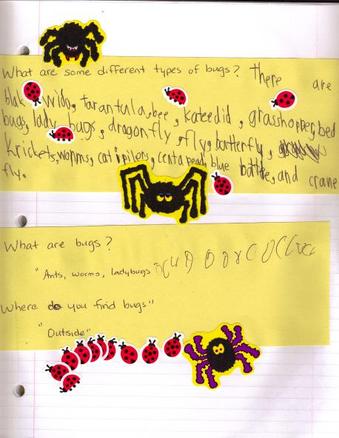 What are some different types of bugs? There are
blak wido, tarantala, bee, kateedid, grasshopper, bed
bugs, lady bugs, dragonfly, fly, butterfly,
krickets, worms, catipilers, centapead, blue battle, and crane
fly.
What are bugs?
"Ants, worms, ladybugs
Where do you find bugs"
"Outside"